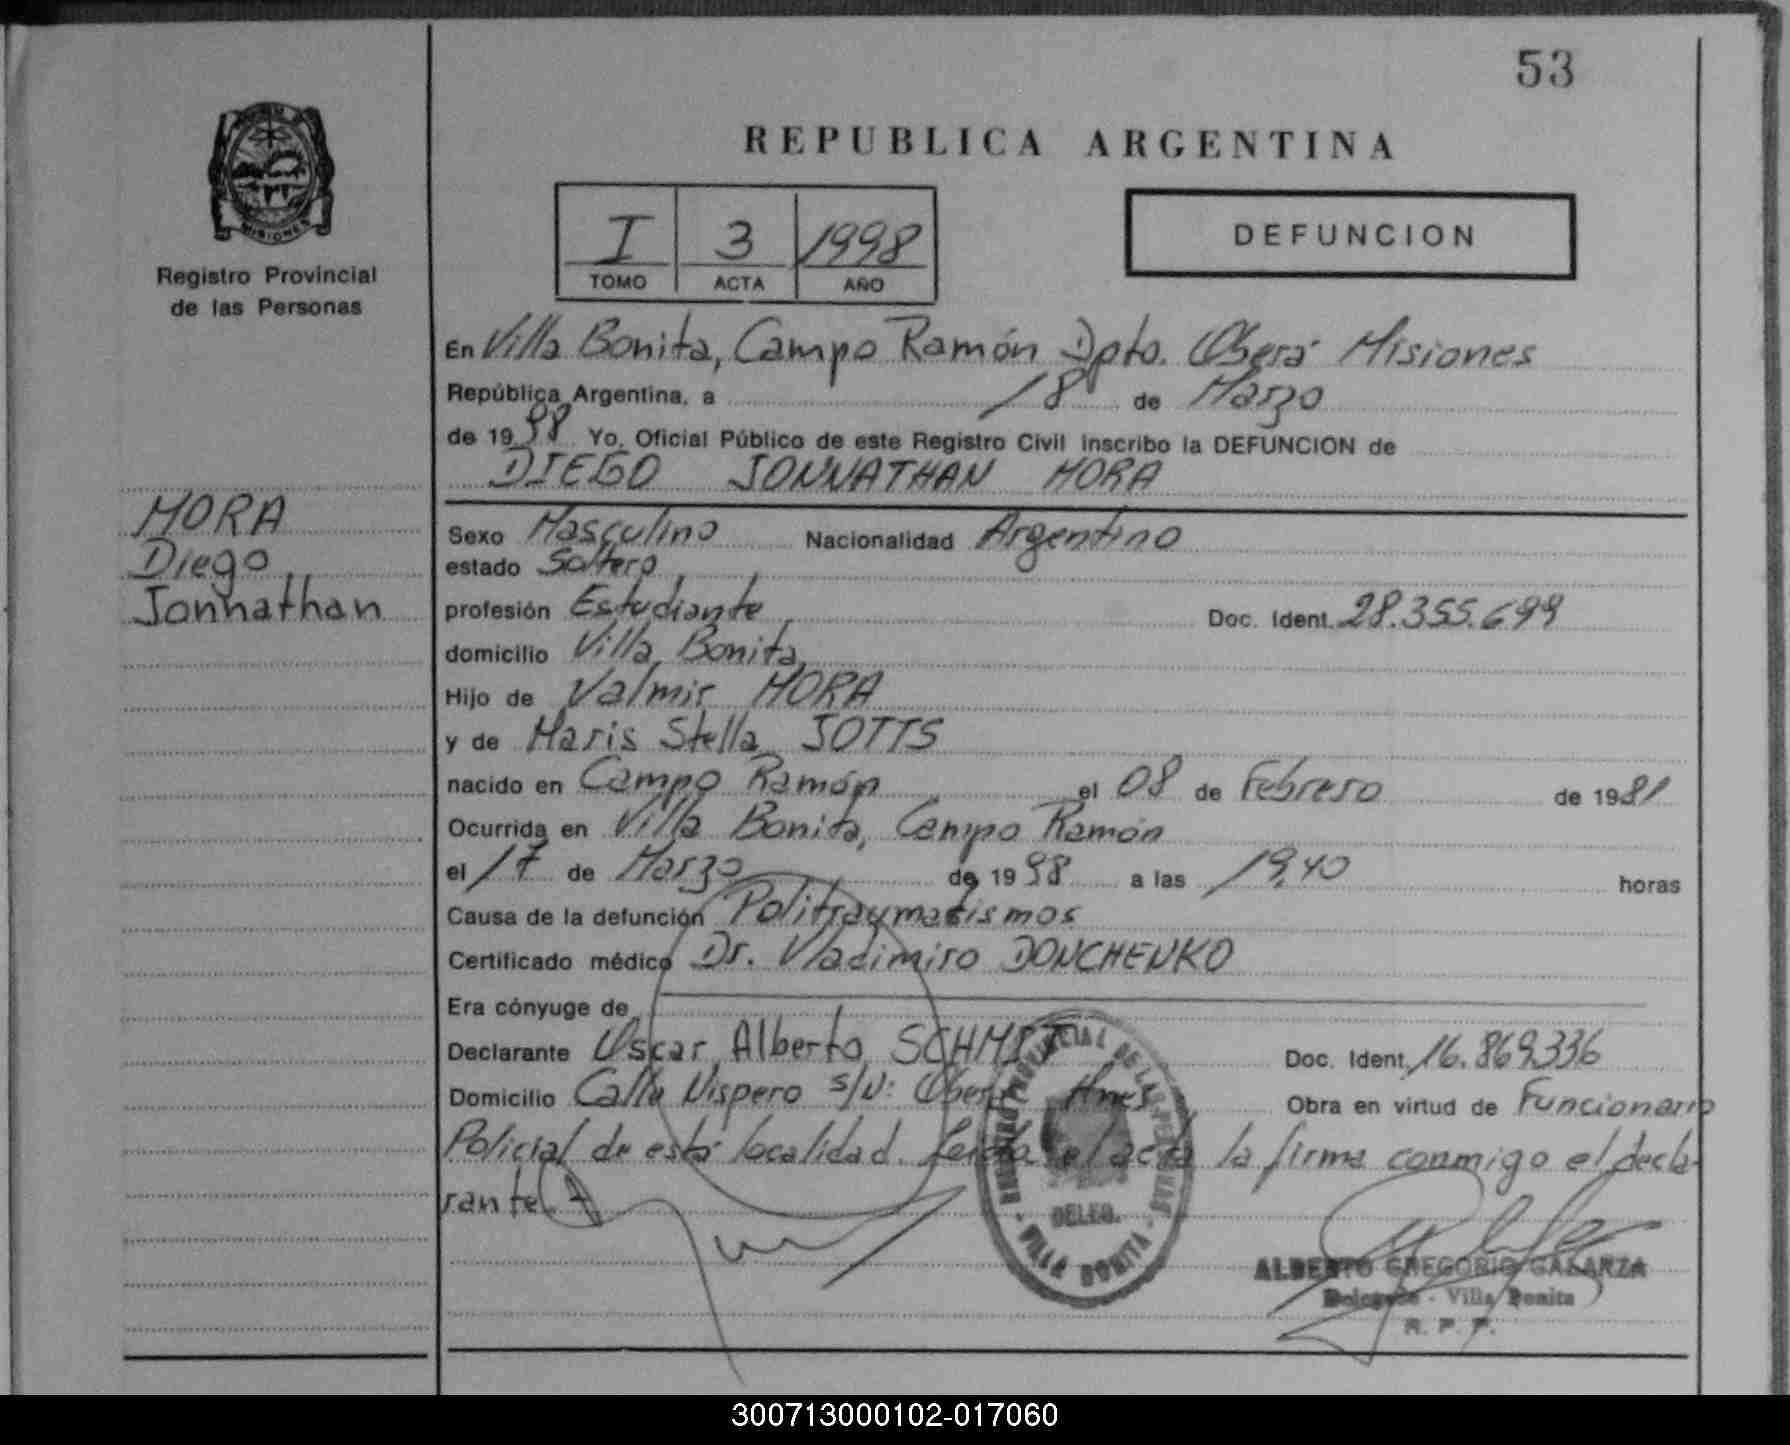 53
REPUBLICA ARGENTINA
MISIONES
Registro Provincial
de las Personas
I 3 1998
TOMO ACTA AÑO
DEFUNCION
En Villa Bonita, Campo Ramón Dpto. Oberá Misiones
República Argentina, a 18 de Marzo
de 1998 Yo, Oficial Público de este Registro Civil inscribo la DEFUNCION de
DIEGO JONNATHAN MORA
MORA
Diego
Jonnathan
Sexo Masculino Nacionalidad Argentino
estado Soltero
profesión Estudiante Doc. Ident. 28.355.699
domicilio Villa Bonita
Hijo de Valmir MORA
y de Maris Stella JOTTS
nacido en Campo Ramón el 08 de Febrero de 1981
Ocurrida en Villa Bonita, Campo Ramón
el 17 de Marzo de 1998 a las 19,40 horas
Causa de la defunción Politraumatismos
Certificado médico Dr. Vladimiro DONCHENKO
Era cónyuge de
Declarante Oscar Alberto SCHMIT Doc. Ident. 16.869.336
Domicilio Calle Nispero s/N: Oberá Mnes Obra en virtud de Funcionario
Policial de esta localidad. Leida el acta la firma conmigo el decla-
rante.
REGISTRO PROVINCIAL DE LAS PERSONAS
DELEG.
- VILLA BONITA -
ALBERTO GREGORIO GALARZA
Delegado - Villa Bonita
R. P. P.
300713000102-017060